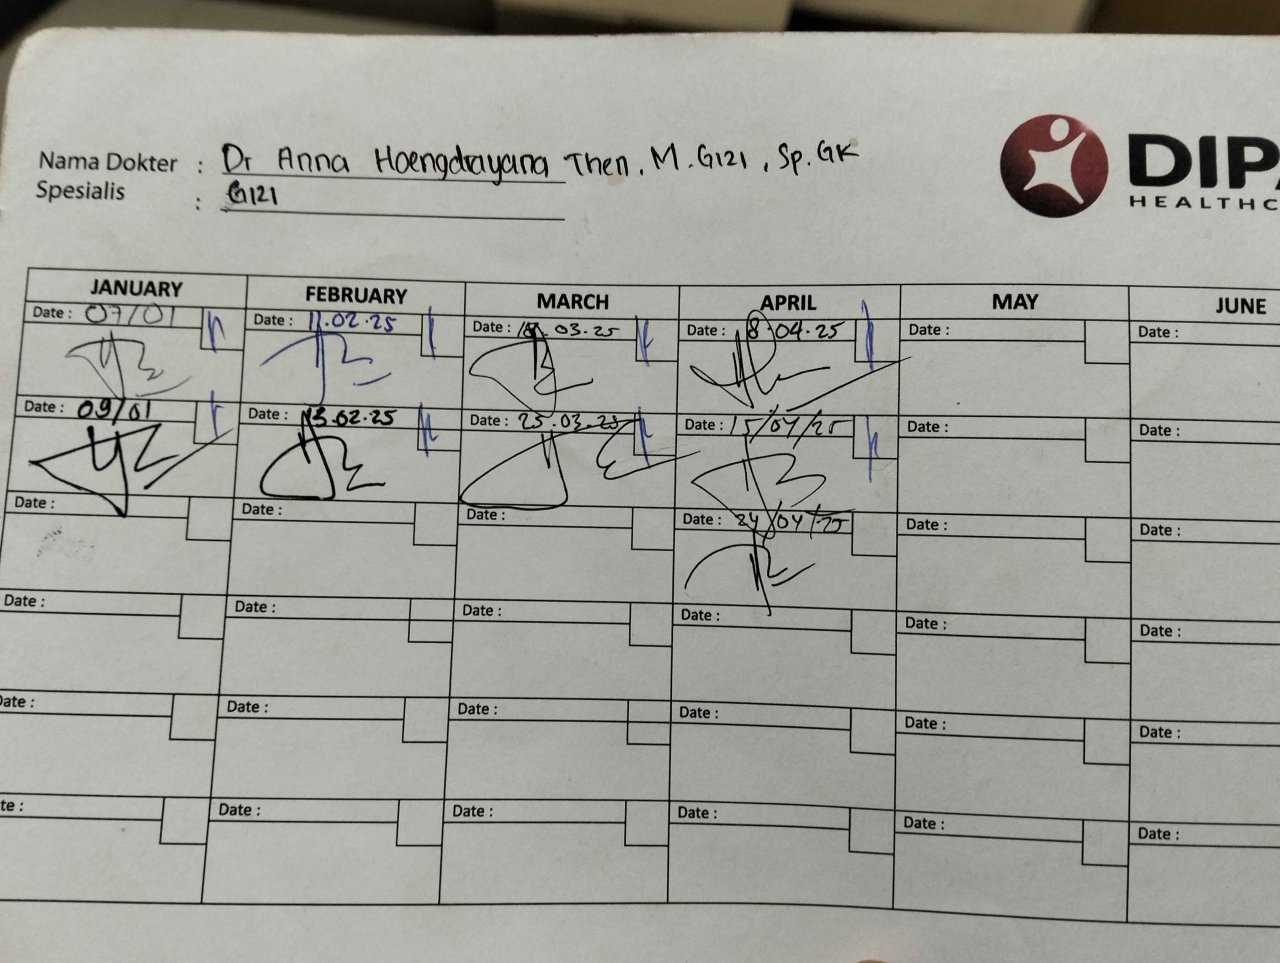 Nama Dokter : Dr Anna Hoengdrayana Then, M.GIZI, Sp.GK
Spesialis : GIZI
DIPA
HEALTHC
JANUARY FEBRUARY MARCH APRIL MAY JUNE
Date : 07/01 Date : 11.02.25 Date : 03.25 Date : 8.04.25 Date : Date :
Date : 09/01 Date : 13.02.25 Date : 25.03.25 Date : 15/04/25 Date : Date :
Date : Date : Date : Date : 24/04/25 Date : Date :
Date : Date : Date : Date : Date : Date :
Date : Date : Date : Date : Date : Date :
te : Date : Date : Date : Date : Date :